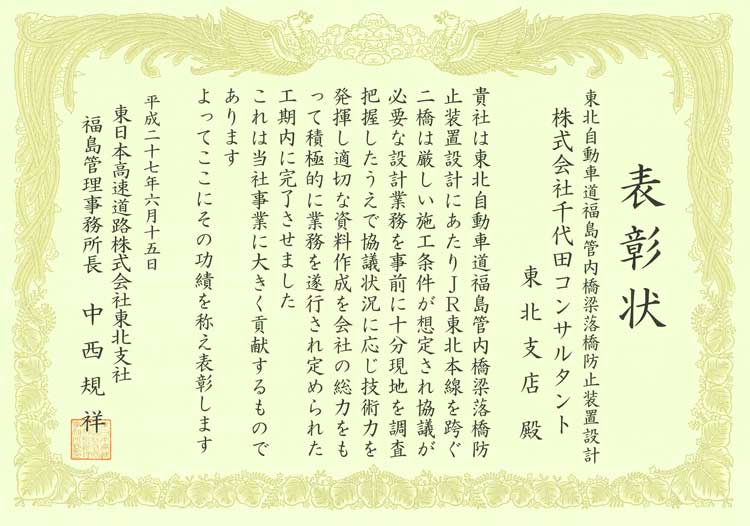 表彰状
東北自動車道福島管内橋梁落橋防止装置設計
株式会社千代田コンサルタント
東北支店 殿
貴社は東北自動車道福島管内橋梁落橋防
止装置設計にあたりJR東北本線を跨ぐ
二橋は厳しい施工条件が想定され協議が
必要な設計業務を事前に十分現地を調査
把握したうえで協議状況に応じ技術力を
発揮し適切な資料作成を会社の総力をも
って積極的に業務を遂行され定められた
工期内に完了させました
これは当社事業に大きく貢献するもので
あります
よってここにその功績を称え表彰します
平成二十七年六月十五日
東日本高速道路株式会社東北支社
福島管理事務所長 中西規祥